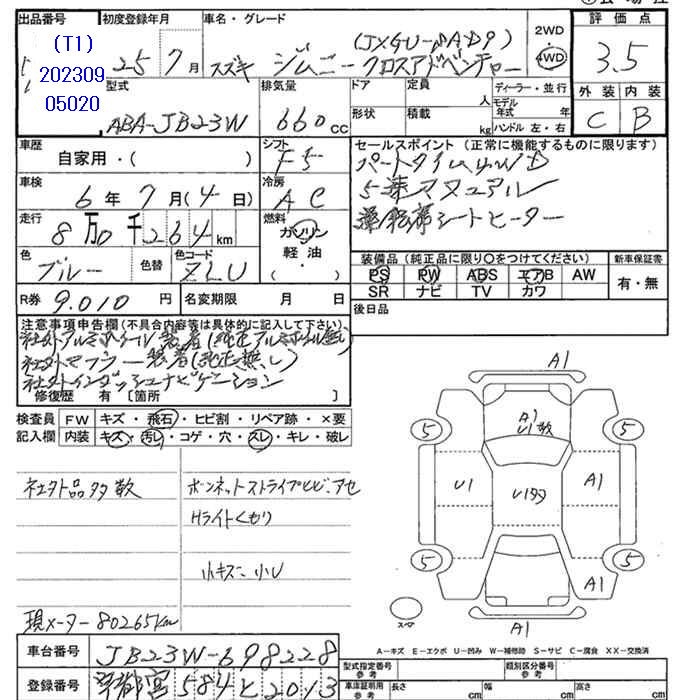 出品番号 初度登録年月 車名・グレード 2WD 評価点
(T1) 25年 7月 スズキ ジムニー クロスアドベンチャー 4WD 3.5
202309
05020
型式 排気量 ドア 定員 人 ディーラー・並行 外装 内装
ABA-JB23W 660cc 形状 積載 kg モデル年式 年 ハンドル 左・右 C B
車歴 自家用・( ) シフト F5 セールスポイント (正常に機能するものに限ります)
パートタイム4WD
車検 6年 7月(4日) 冷房 AC
5速マニュアル
走行 8万0千264km 燃料 ガソリン 軽油 ( ・ )
運転席シートヒーター
色 ブルー 色替 色コード ZLU
装備品 (純正品に限り〇をつけてください) 新車保証書
PS PW ABS エアB AW 有・無
SR ナビ TV カワ
R券 9.010円 名変期限 月 日
後日品
注意事項申告欄 (不具合内容等は具体的に記入して下さい)
社外アルミホイール装着(純正アルミホイル無し)
社外マフラー装着(純正無し)
社外インダッシュナビゲーション
修復歴 有 [箇所 ]
検査員記入欄 FW キズ・飛石・ヒビ割・リペア跡・×要
内装 キズ・汚レ・コゲ・穴・スレ・キレ・破レ
社外品多数 ボンネットストライプヒビ、アセ
Hライトくもり
小キズ、小U
現メーター80265km
A1
A1
U1数
5 5
U1 U1多 A1
5 5
A1
スペア
A1
A-キズ E-エクボ U-凹み W-補修跡 S-サビ C-腐食 XX-交換済
車台番号 JB23W-698228
登録番号 宇都宮584と2013
型式指定番号 参考 類別区分番号 参考
車庫証明用 参考 長さ cm 幅 cm 高さ cm